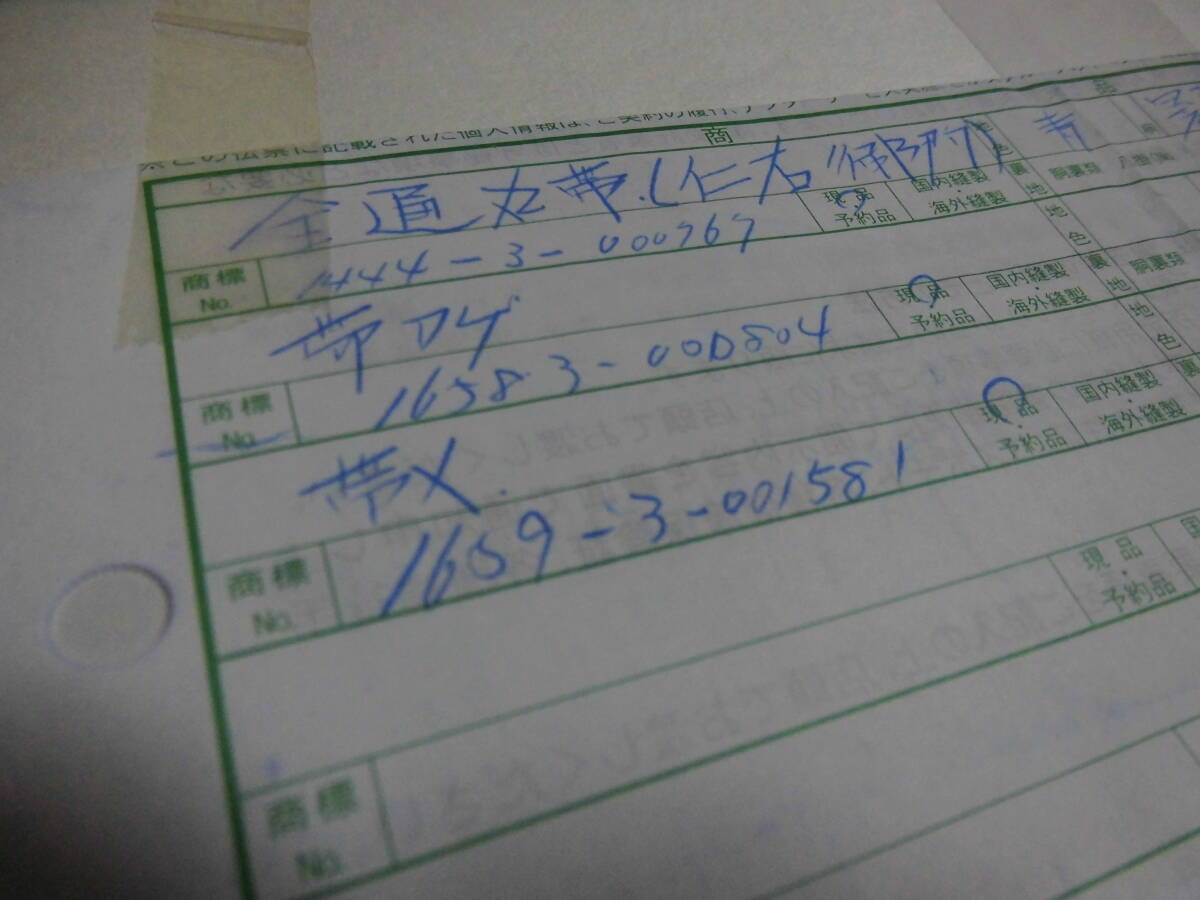 に記載された個人情報は、ご契約の履行、アフターサービス
商
全通丸帯(仁右衛門) 青
現品・予約品 国内縫製・海外縫製 裏地 胴裏類 八掛
商標No. 1444-3-000767 地色
帯アゲ
現品・予約品 国内縫製・海外縫製 裏地 胴裏類
商標No. 1658-3-000804 地色
帯〆
現品・予約品 国内縫製・海外縫製 裏
商標No. 1659-3-001581
現品・予約品 国
商標No.
商標No.